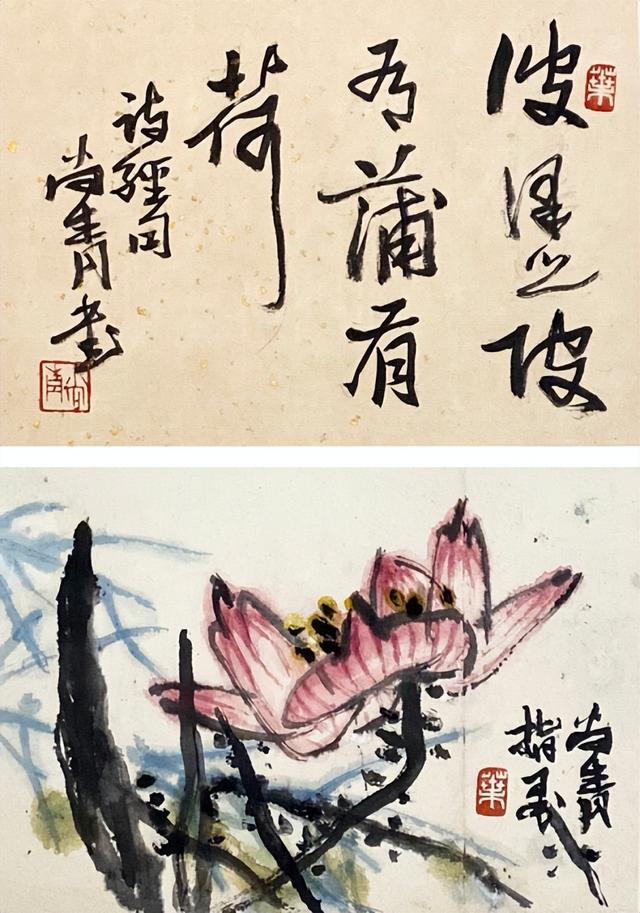 葉
彼泽之陂
有蒲有
荷
诗經句
尚青書
尚青
尚青
指墨
葉